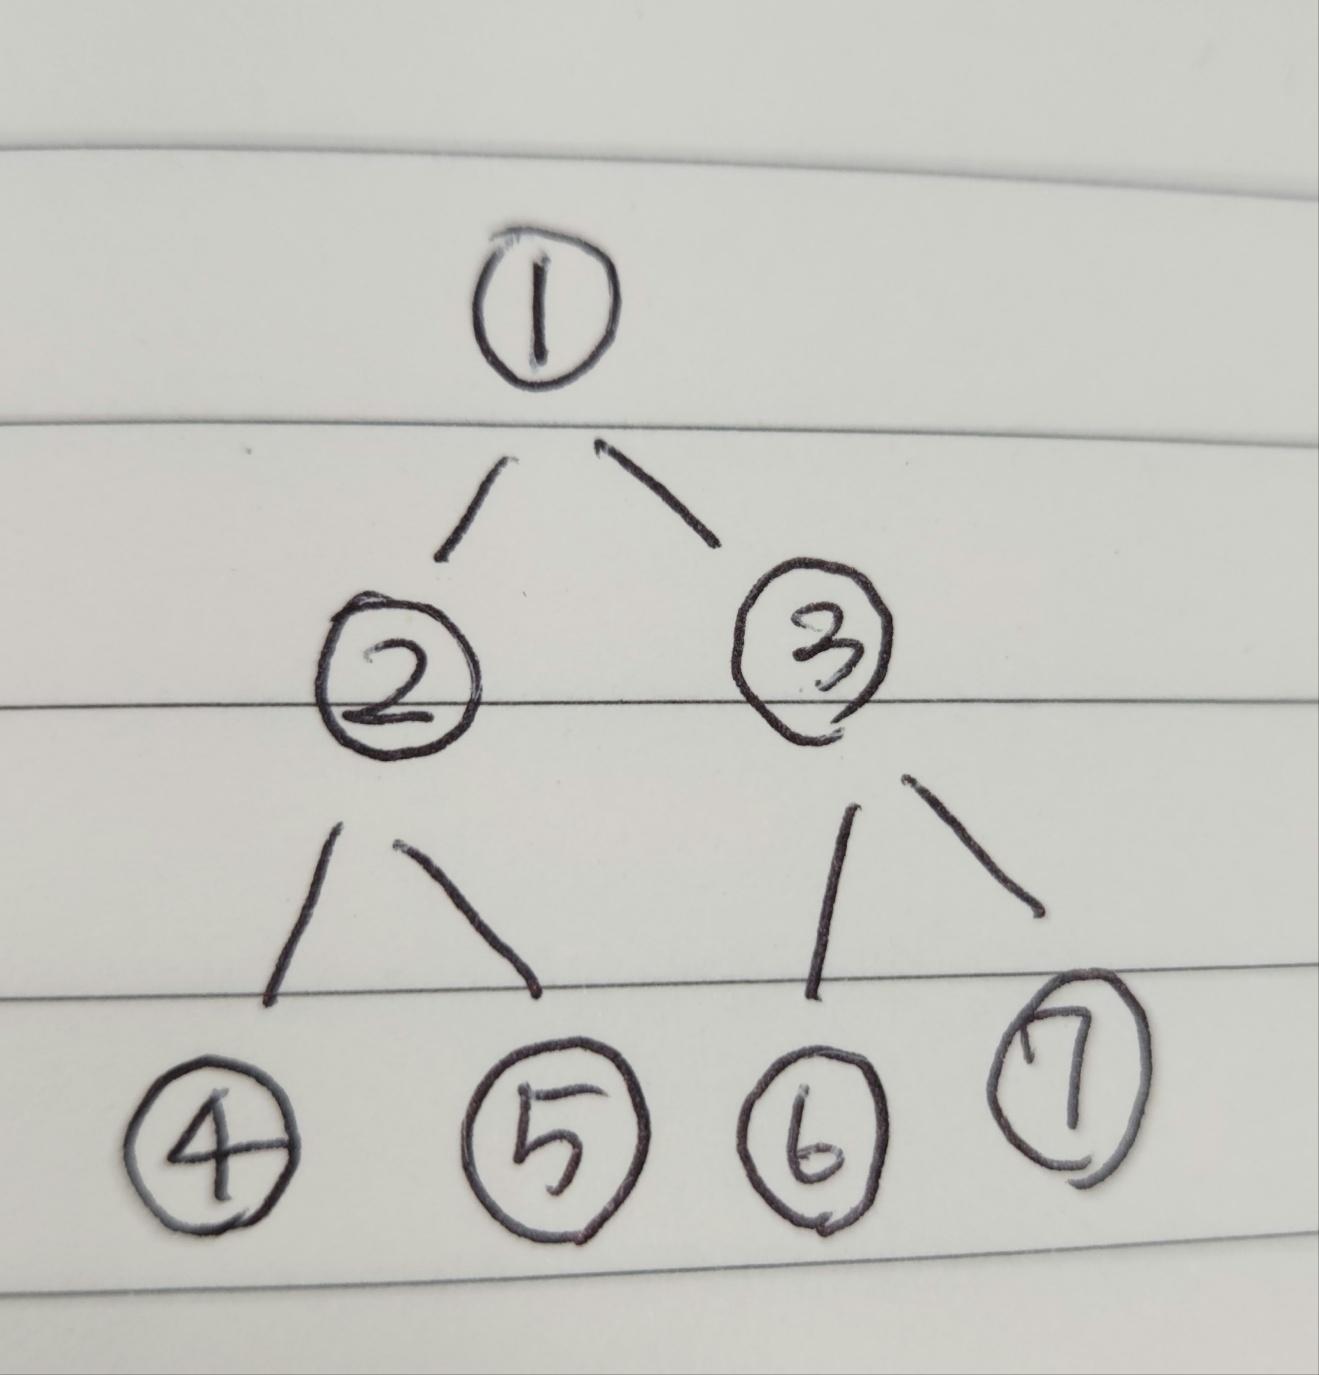 1
2 3
4 5 6 7